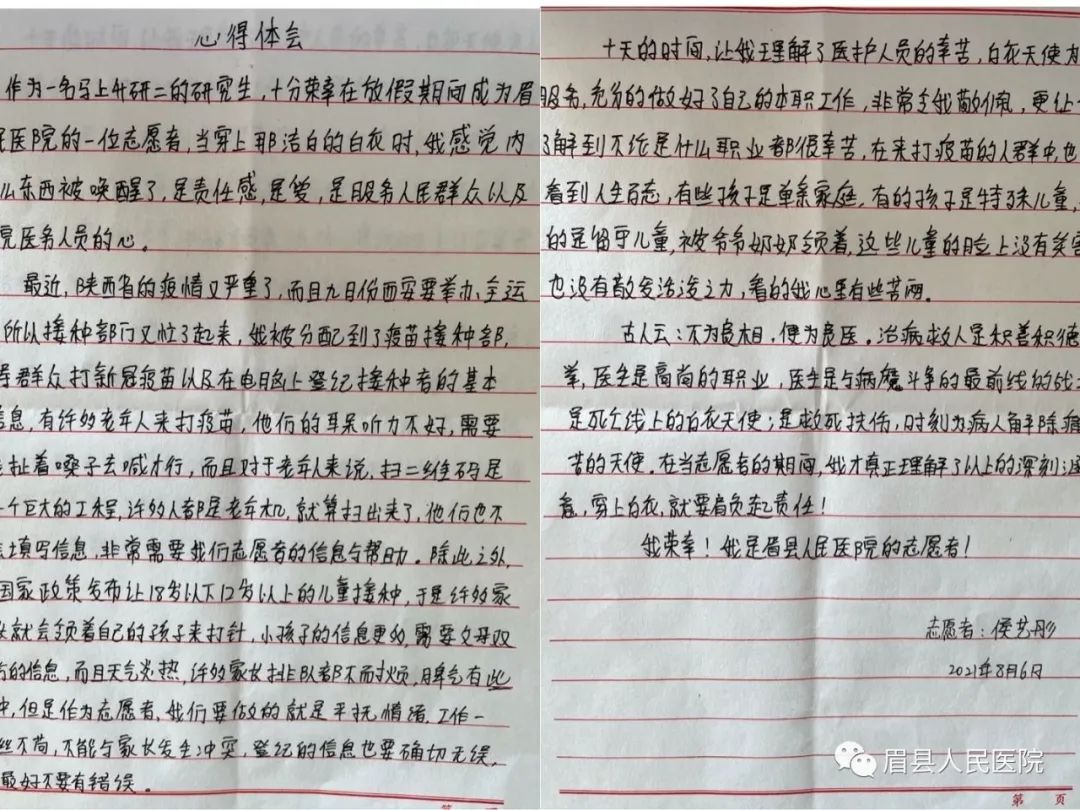 心得体会
作为一名马上升研二的研究生,十分荣幸在放假期间成为眉
医院的一位志愿者,当穿上那洁白的白衣时,我感觉内
么东西被唤醒了,是责任感,是爱,是服务人民群众以及
院医务人员的心。
最近,陕西省的疫情又严重了,而且九月份西安要举办全运
所以接种部门又忙了起来,我被分配到了疫苗接种部,
群众打新冠疫苗以及在电脑上登记接种者的基本
信息,有许多老年人来打疫苗,他们的耳朵听力不好,需要
扯着嗓子去喊才行,而且对于老年人来说,扫二维码是
一个巨大的工程,许多人都是老年机,就算扫出来了,他们也不
填写信息,非常需要我们志愿者的信息与帮助。除此之外,
国家政策发布让18岁以下12岁以上的儿童接种,于是许多家
长就会领着自己的孩子来打针,小孩子的信息更多,需要父母双
方的信息,而且天气炎热,许多家长排队都不耐烦,脾气有些
冲,但是作为志愿者,我们要做的就是平抚情绪,工作一
丝不苟,不能与家长发生冲突,登记的信息也要确切无误,
最好不要有错误。
十天的时间,让我理解了医护人员的幸苦,白衣天使为
服务,充分的做好了自己的本职工作,非常令我敬佩,更让
了解到不论是什么职业都很幸苦,在来打疫苗的人群中,也
看到人生百态,有些孩子是单亲家庭,有的孩子是特殊儿童,
的是留守儿童,被爷爷奶奶领着,这些儿童的脸上没有笑容
也没有散发活泼之力,看的我心里有些苦闷。
古人云:不为良相,便为良医。治病救人是积善积德
举,医生是高尚的职业,医生是与病魔斗争的最前线的战士
是死亡线上的白衣天使;是救死扶伤,时刻为病人解除病
苦的天使。在当志愿者的期间,我才真正理解了以上的深刻涵
意,穿上白衣,就要肩负起责任!
我荣幸!我是眉县人民医院的志愿者!
志愿者:侯艺彤
2021年8月6日
眉县人民医院
第 页